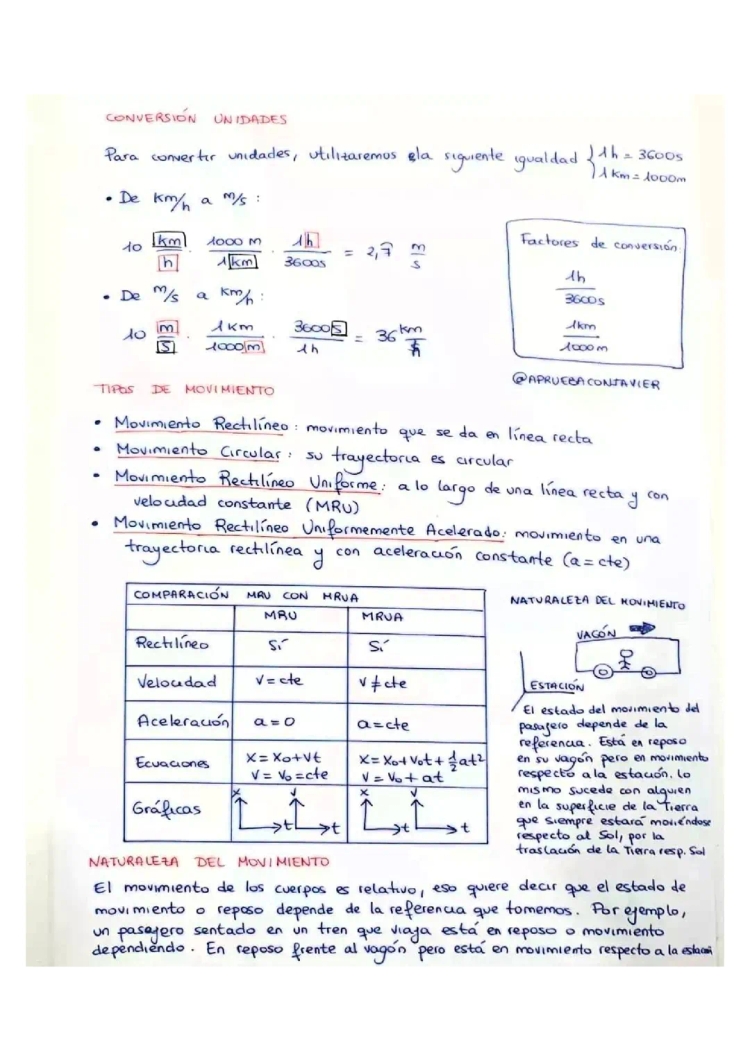 CONVERSIÓN UNIDADES
Para convertir unidades, utilizaremos la siguiente igualdad { 1h = 3600s
1 Km = 1000m
• De Km/h a m/s :
10 km/h · 1000 m/1 km · 1h/3600s = 2,7 m/s
• De m/s a Km/h :
10 m/s · 1 Km/1000 m · 3600 s/1h = 36 Km/h
Factores de conversión
1h
3600s
1km
1000m
@APRUEBACONJAVIER
TIPOS DE MOVIMIENTO
• Movimiento Rectilíneo : movimiento que se da en línea recta
• Movimiento Circular : su trayectoria es circular
• Movimiento Rectilíneo Uniforme : a lo largo de una línea recta y con
velocidad constante (MRU)
• Movimiento Rectilíneo Uniformemente Acelerado: movimiento en una
trayectoria rectilínea y con aceleración constante (a = cte)
COMPARACIÓN MRU CON MRUA
MRU MRUA
Rectilíneo Sí Sí
Velocidad V = cte V ≠ cte
Aceleración a = 0 a = cte
Ecuaciones X = X₀ + Vt X = X₀ + V₀t + ½at²
V = V₀ = cte V = V₀ + at
Gráficas x t v t x t v t
NATURALEZA DEL MOVIMIENTO
VAGÓN
ESTACIÓN
El estado del movimiento del
pasajero depende de la
referencia. Está en reposo
en su vagón pero en movimiento
respecto a la estación. Lo
mismo sucede con alguien
en la superficie de la Tierra
que siempre estará moviéndose
respecto al Sol, por la
traslación de la Tierra resp. Sol
NATURALEZA DEL MOVIMIENTO
El movimiento de los cuerpos es relativo, eso quiere decir que el estado de
movimiento o reposo depende de la referencia que tomemos. Por ejemplo,
un pasajero sentado en un tren que viaja está en reposo o movimiento
dependiendo. En reposo frente al vagón pero está en movimiento respecto a la estación